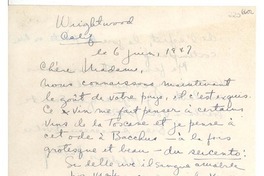 Wrightwood
Calif
le 6 juin, 1947.
Chère Madame,
nous connaissons maintenant
le goût de votre pays, il est exquis.
Ce vin me fait penser à certains
vins de la Toscane et je pense à
cet ode à Bacchus - à la fois
grotesque et beau - du seicento: